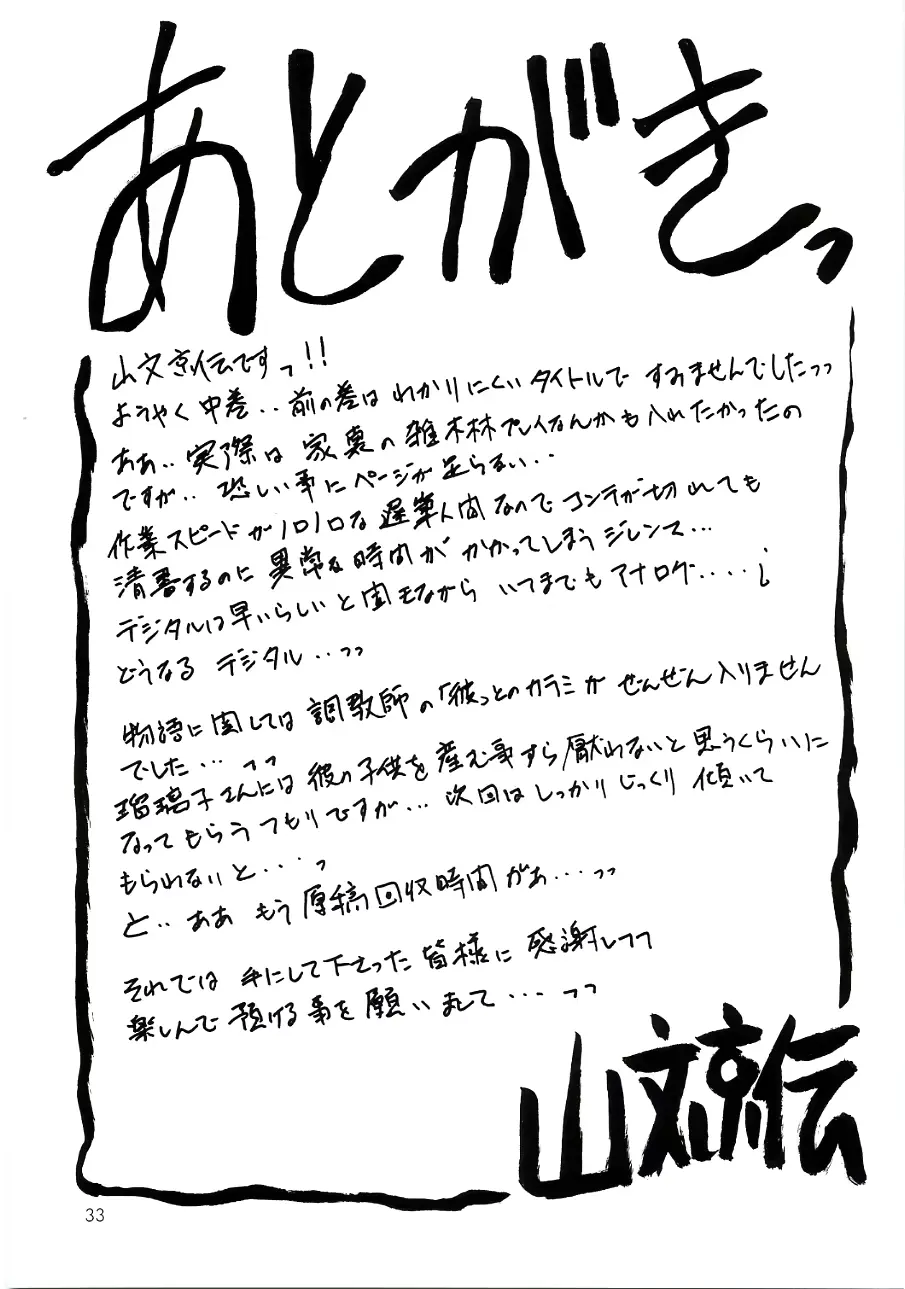 あとがきっ
山文京伝ですっ!!
ようやく中巻‥前の巻はわかりにくいタイトルですみませんでしたっっ
ああ‥実際は家裏の雑木林プレイなんかも入れたかったの
ですが‥恐しい事にページが足らない‥
作業スピードがノロノロな遅筆人間なのでコンテが切れても
清書するのに異常な時間がかかってしまうジレンマ…
デジタルは早いらしいと聞きながらいつまでもアナログ‥‥
どうなるデジタル‥っっ
物語に関しては調教師の「彼」とのカラミがぜんぜん入りません
でした…っっ
瑠璃子さんには彼の子供を産む事すら厭わないと思うくらいに
なってもらうつもりですが…次回はしっかりじっくり傾いて
もらわないと…っ
と‥ああもう原稿回収時間がぁ…っっ
それでは手にして下さった皆様に感謝しつつ
楽しんで頂ける事を願いまして…っっ
山文京伝
33